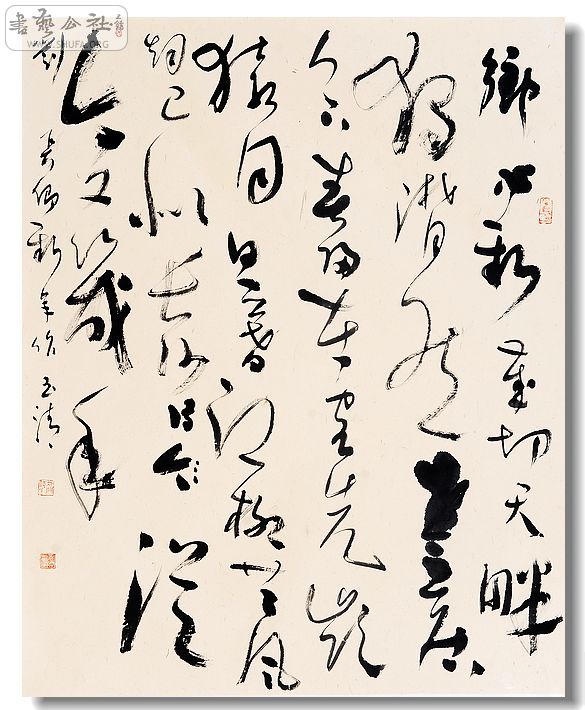 書藝公社
WWW.SHUFA.ORG
鄉心新歲切天畔
獨潸然老至居
人下春歸在客先嶺
猿同旦暮江柳共風
烟已似長沙傅從
今又幾年
劉長卿新年作 玉清